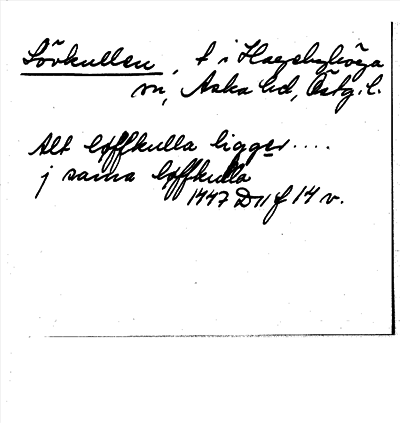 Lövkullen, t i Hagebyhöga
sn, Aska hd, Östg. l.
Alt løffkulla ligger....
j sama løffkulla
1447 D 11 f 14 v.